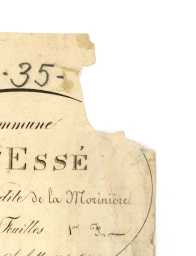 -35-
ommune
Essé
dite de la Morinière
Feuilles